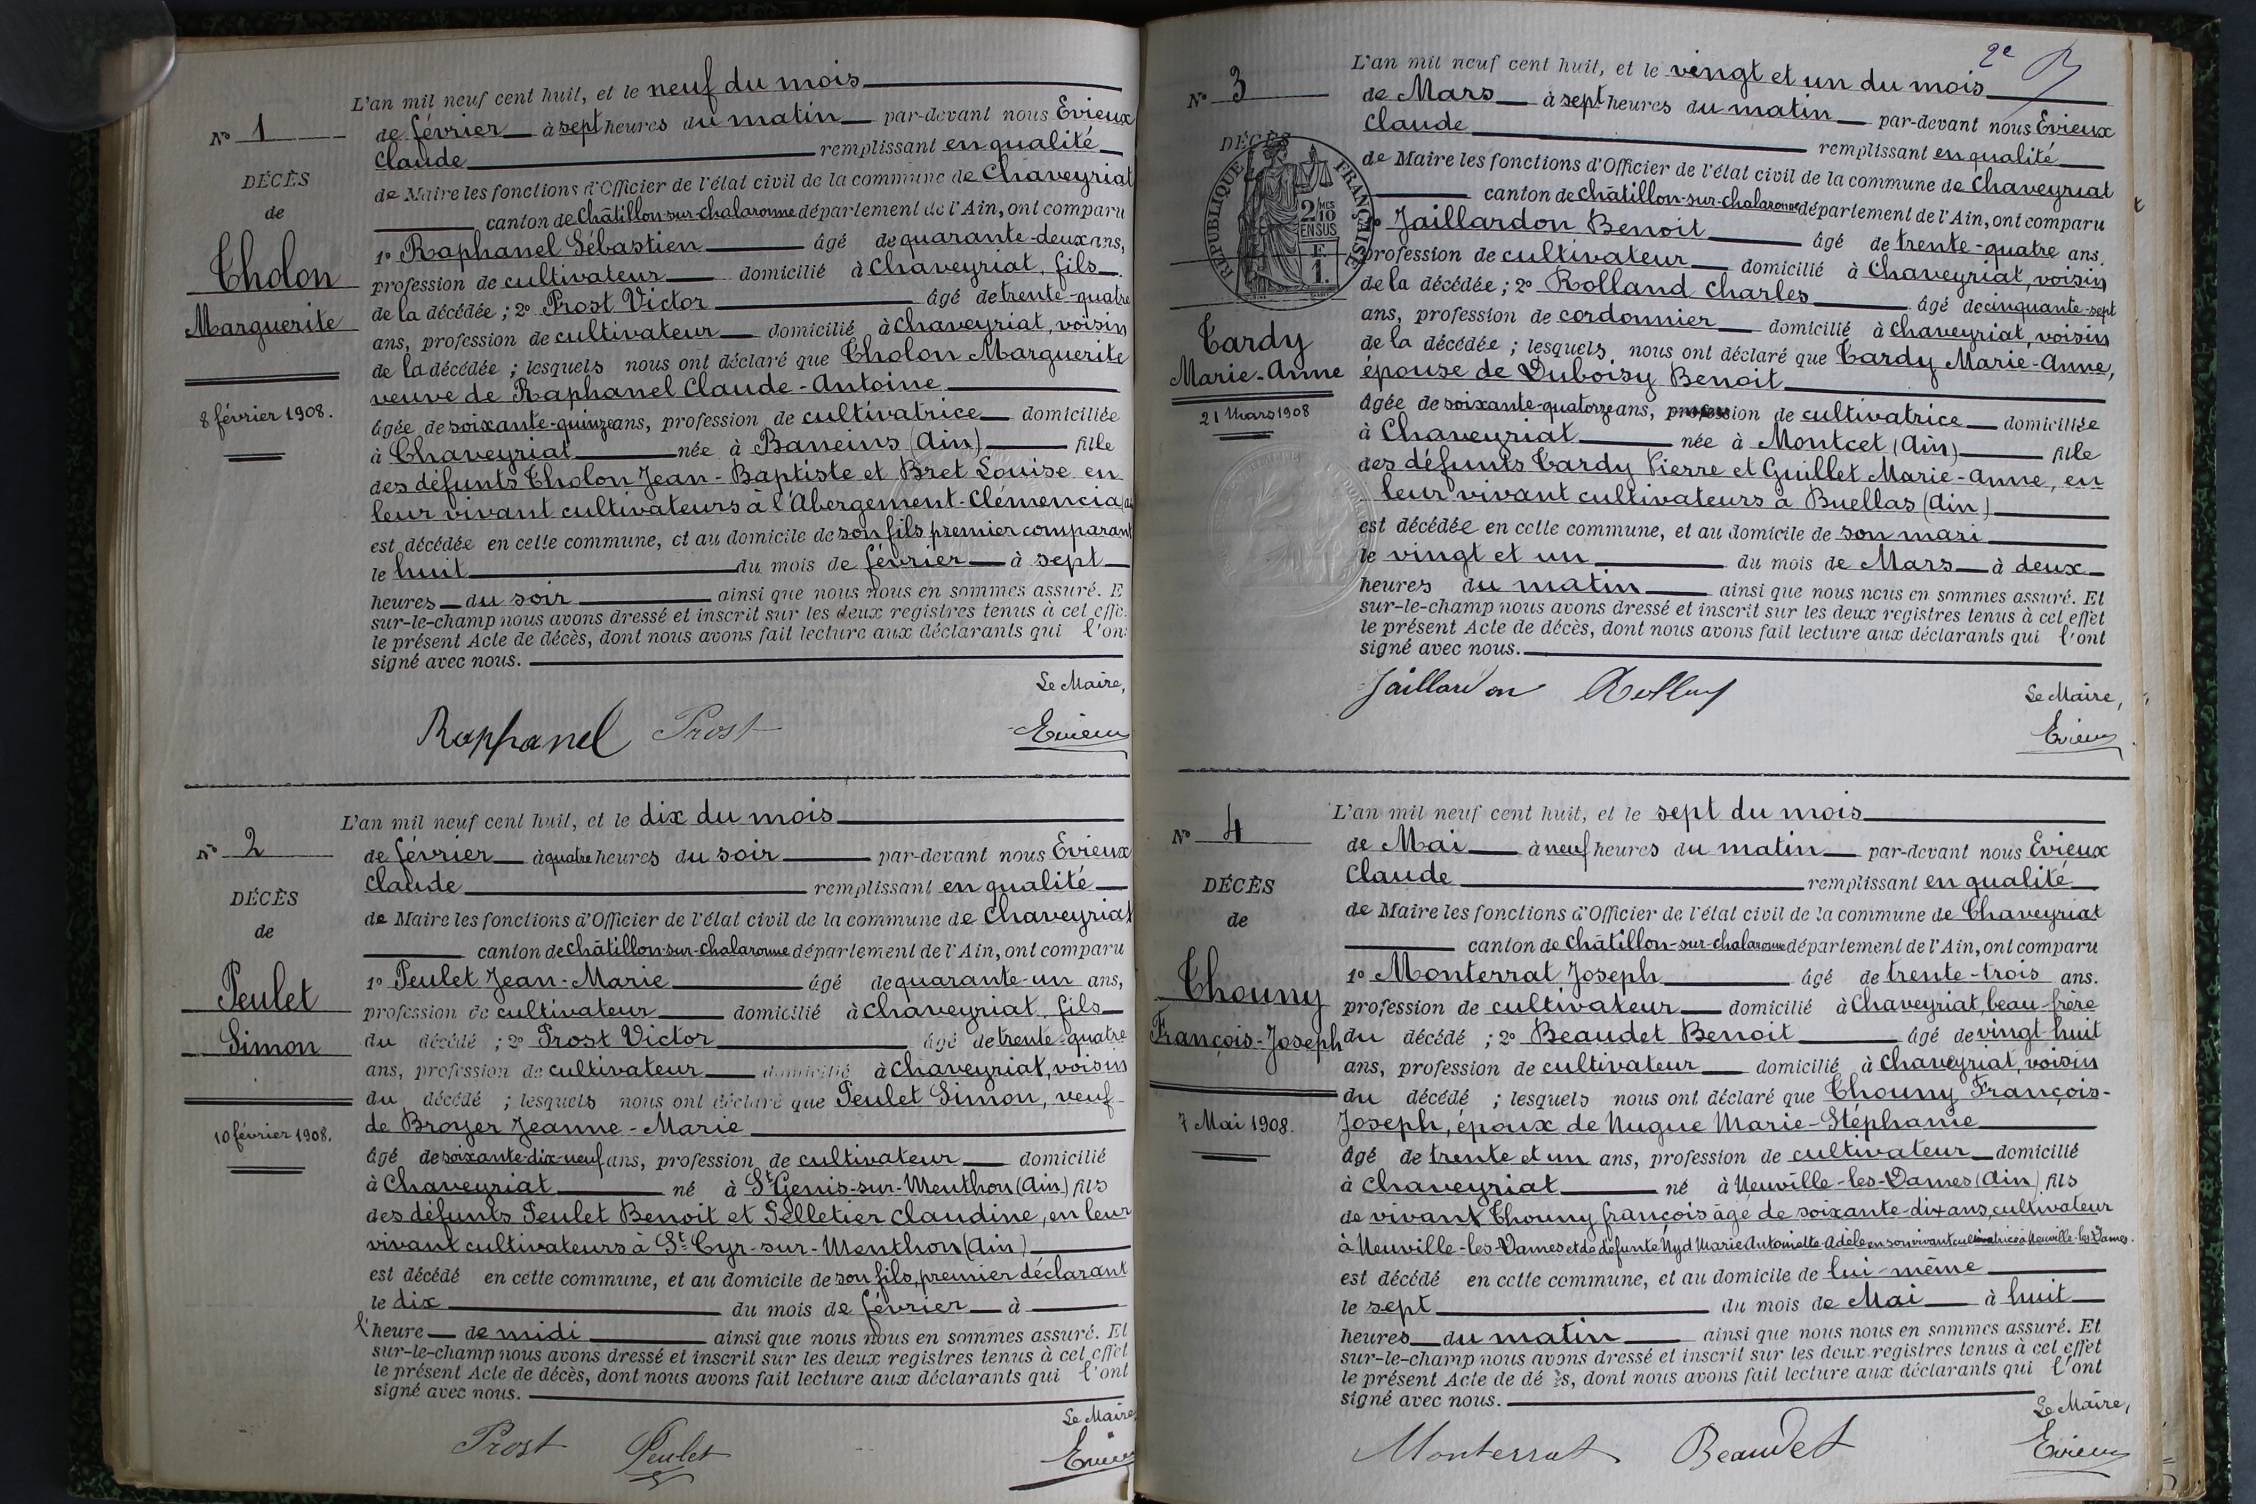 N° 1
DÉCÈS
de
Tholon
Marguerite
8 février 1908.
L'an mil neuf cent huit, et le neuf du mois
de février à sept heures du matin par-devant nous Evieux
Claude remplissant en qualité
de Maire les fonctions d'Officier de l'état civil de la commune de Chaveyriat
canton de Châtillon-sur-Chalaronne département de l'Ain, ont comparu
1° Raphanel Sébastien âgé de quarante-deux ans,
profession de cultivateur domicilié à Chaveyriat, fils
de la décédée ; 2° Prost Victor âgé de trente-quatre
ans, profession de cultivateur domicilié à Chaveyriat, voisin
de la décédée ; lesquels nous ont déclaré que Tholon Marguerite
veuve de Raphanel Claude-Antoine
âgée de soixante-quinze ans, profession de cultivatrice domiciliée
à Chaveyriat née à Baneins (Ain) fille
des défunts Tholon Jean-Baptiste et Bret Louise en
leur vivant cultivateurs à l'Abergement-Clémencia
est décédée en cette commune, et au domicile de son fils, premier comparant
le huit du mois de février à sept
heures du soir ainsi que nous nous en sommes assuré. E
sur-le-champ nous avons dressé et inscrit sur les deux registres tenus à cet effe
le présent Acte de décès, dont nous avons fait lecture aux déclarants qui l'ont
signé avec nous.
Le Maire,
Raphanel Prost Evieux
N° 2
DÉCÈS
de
Peulet
Simon
10 février 1908.
L'an mil neuf cent huit, et le dix du mois
de février à quatre heures du soir par-devant nous Evieux
Claude remplissant en qualité
de Maire les fonctions d'Officier de l'état civil de la commune de Chaveyriat
canton de Châtillon-sur-Chalaronne département de l'Ain, ont comparu
1° Peulet Jean-Marie âgé de quarante-un ans,
profession de cultivateur domicilié à Chaveyriat, fils
du décédé ; 2° Prost Victor âgé de trente-quatre
ans, profession de cultivateur domicilié à Chaveyriat, voisin
du décédé ; lesquels nous ont déclaré que Peulet Simon, veuf
de Broyer Jeanne-Marie
âgé de soixante-dix-neuf ans, profession de cultivateur domicilié
à Chaveyriat né à St Genis-sur-Menthon (Ain) fils
des défunts Peulet Benoit et Pelletier Claudine, en leur
vivant cultivateurs à St Cyr-sur-Menthon (Ain)
est décédé en cette commune, et au domicile de son fils, premier déclarant
le dix du mois de février à
l'heure de midi ainsi que nous nous en sommes assuré. Et
sur-le-champ nous avons dressé et inscrit sur les deux registres tenus à cet effet
le présent Acte de décès, dont nous avons fait lecture aux déclarants qui l'ont
signé avec nous.
Le Maire
Prost Peulet Evieux
2e
N° 3
DÉCÈS
RÉPUBLIQUE FRANÇAISE
2/10
MES
EN SUS
F.
1.
Tardy
Marie-Anne
21 Mars 1908
L'an mil neuf cent huit, et le vingt et un du mois
de Mars à sept heures du matin par-devant nous Evieux
Claude remplissant en qualité
de Maire les fonctions d'Officier de l'état civil de la commune de Chaveyriat
canton de Châtillon-sur-Chalaronne département de l'Ain, ont comparu
1° Jaillardon Benoit âgé de trente-quatre ans.
profession de cultivateur domicilié à Chaveyriat, voisin
de la décédée ; 2° Rolland Charles âgé de cinquante-sept
ans, profession de cordonnier domicilié à Chaveyriat, voisin
de la décédée ; lesquels nous ont déclaré que Tardy Marie-Anne,
épouse de Duboisy Benoit
âgée de soixante-quatorze ans, profession de cultivatrice domiciliée
à Chaveyriat née à Montcet (Ain) fille
des défunts Tardy Pierre et Guillet Marie-Anne, en
leur vivant cultivateurs à Buellas (Ain)
est décédée en cette commune, et au domicile de son mari
le vingt et un du mois de Mars à deux
heures du matin ainsi que nous nous en sommes assuré. Et
sur-le-champ nous avons dressé et inscrit sur les deux registres tenus à cet effet
le présent Acte de décès, dont nous avons fait lecture aux déclarants qui l'ont
signé avec nous.
Le Maire,
Jaillardon Evieux
N° 4
DÉCÈS
de
Thouny
François-Joseph
7 Mai 1908.
L'an mil neuf cent huit, et le sept du mois
de Mai à neuf heures du matin par-devant nous Evieux
Claude remplissant en qualité
de Maire les fonctions d'Officier de l'état civil de la commune de Chaveyriat
canton de Châtillon-sur-Chalaronne département de l'Ain, ont comparu
1° Monterrat Joseph âgé de trente-trois ans.
profession de cultivateur domicilié à Chaveyriat, beau-frère
du décédé ; 2° Beaudet Benoit âgé de vingt-huit
ans, profession de cultivateur domicilié à Chaveyriat, voisin
du décédé ; lesquels nous ont déclaré que Thouny François-
Joseph, époux de Nugue Marie-Stéphanie
âgé de trente et un ans, profession de cultivateur domicilié
à Chaveyriat né à Neuville-les-Dames (Ain) fils
de vivant Thouny François âgé de soixante-dix ans, cultivateur
à Neuville-les-Dames et de défunte Nyd Marie Antoinette Adèle en son vivant cultivatrice à Neuville-les-Dames.
est décédé en cette commune, et au domicile de lui-même
le sept du mois de Mai à huit
heures du matin ainsi que nous nous en sommes assuré. Et
sur-le-champ nous avons dressé et inscrit sur les deux registres tenus à cet effet
le présent Acte de décès, dont nous avons fait lecture aux déclarants qui l'ont
signé avec nous.
Le Maire,
Monterrat Beaudet Evieux